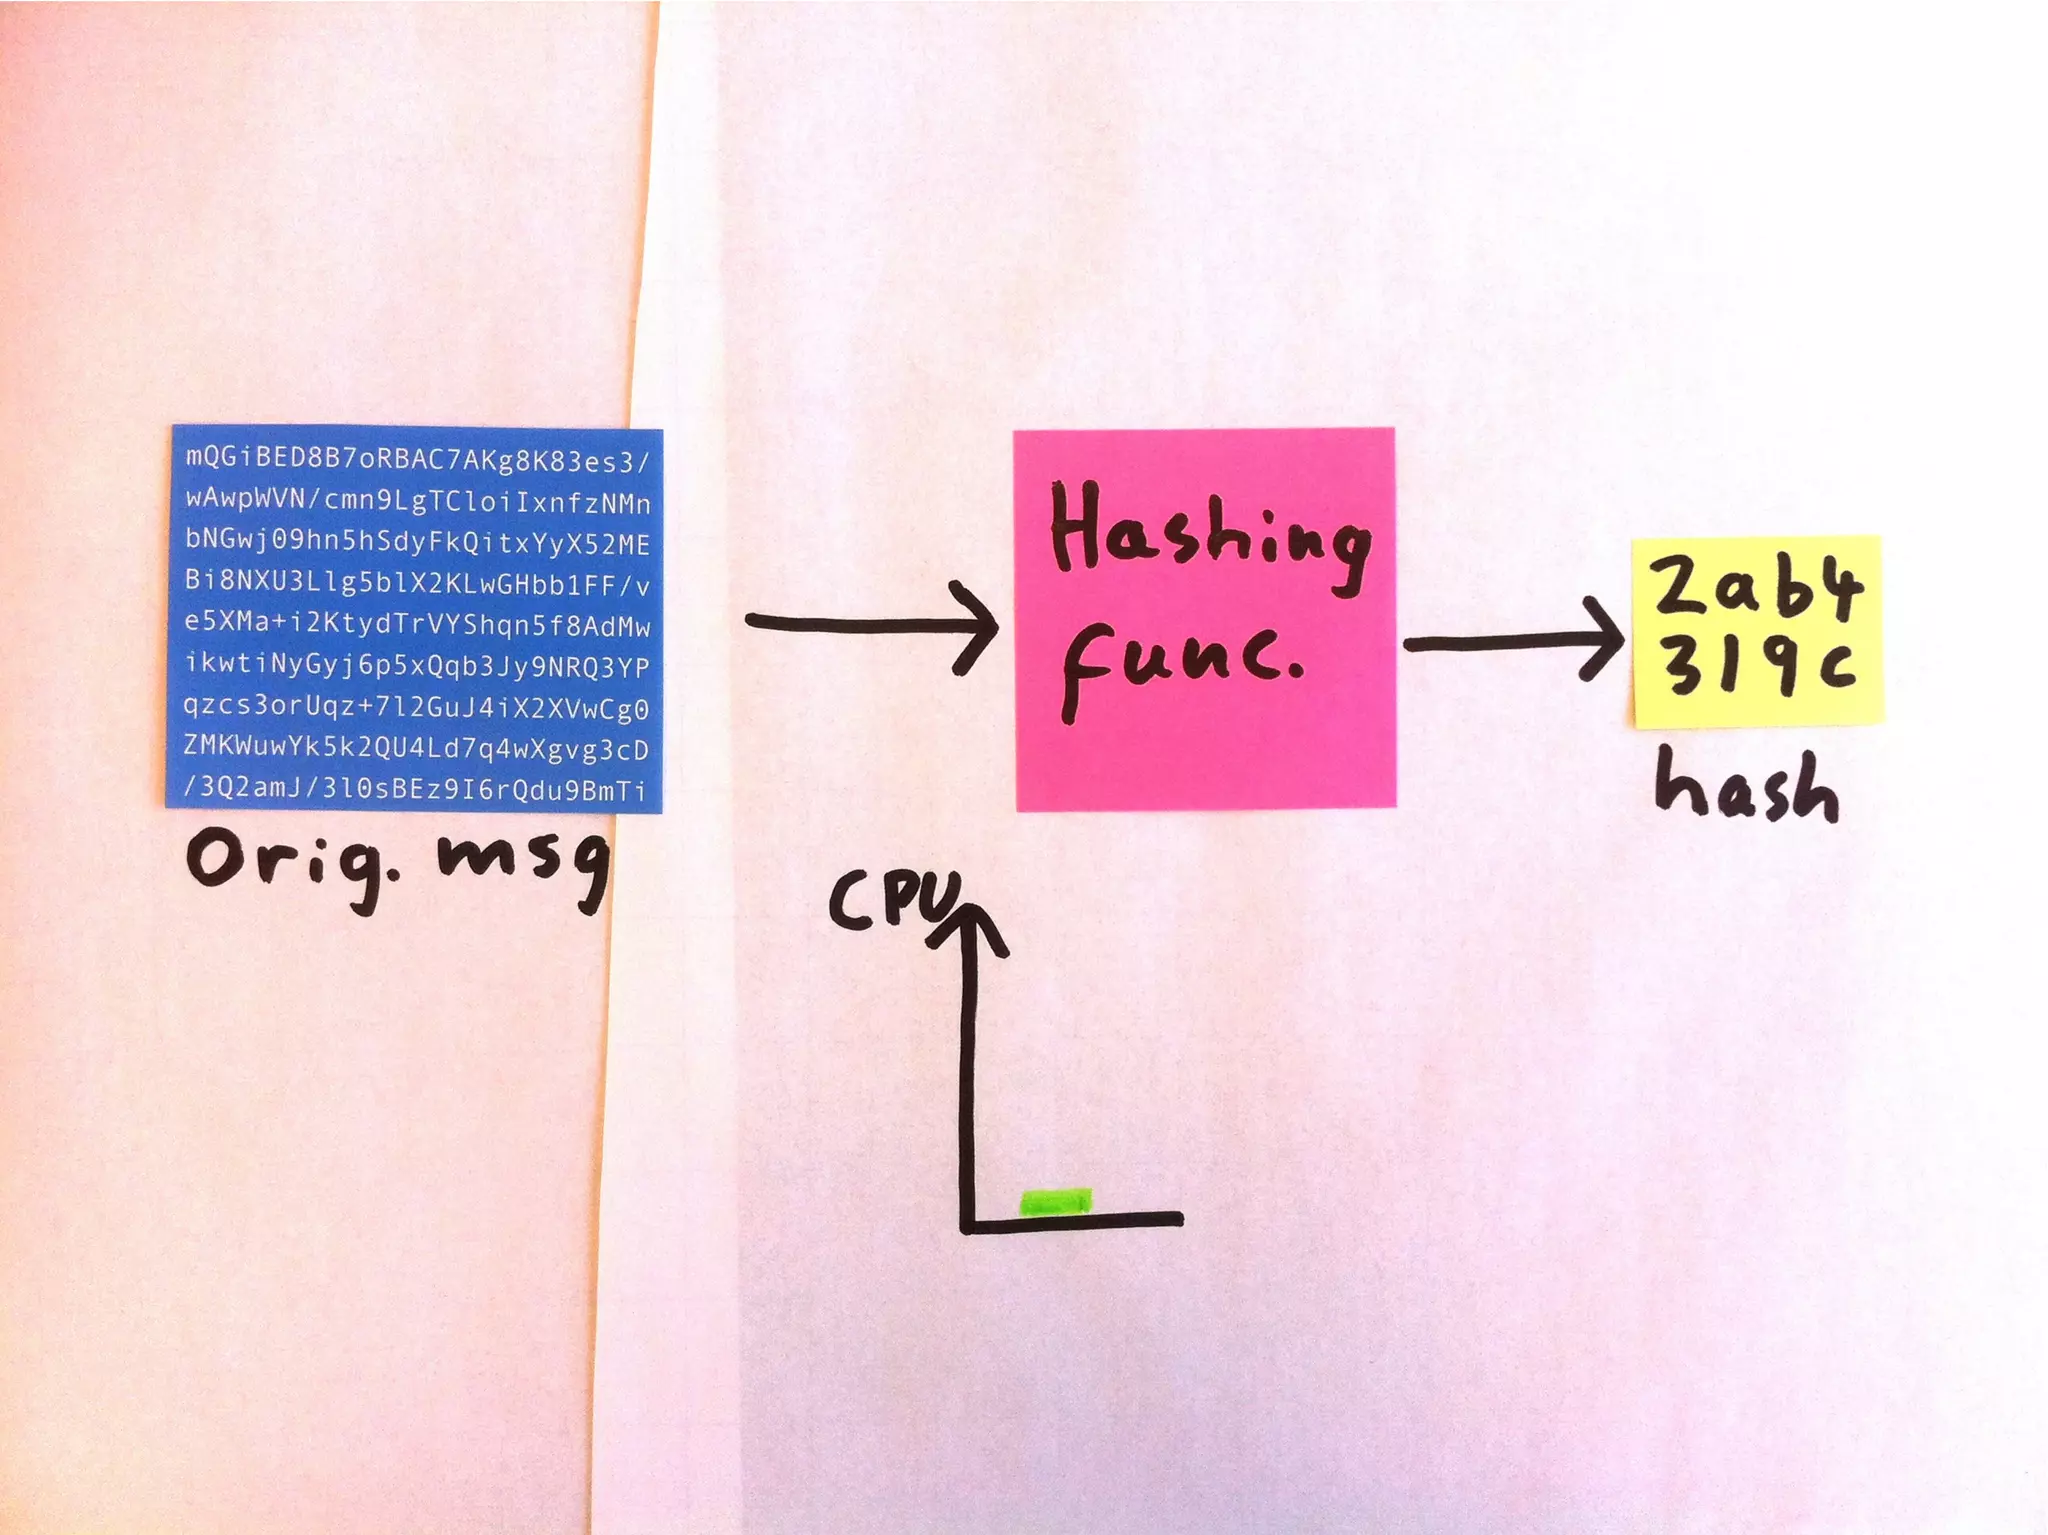 mQGiBED8B7oRBAC7AKg8K83es3/
wAwpWVN/cmn9LgTCloiIxnfzNMn
bNGwj09hn5hSdyFkQitxYyX52ME
Bi8NXU3Llg5blX2KLwGHbb1FF/v
e5XMa+i2KtydTrVYShqn5f8AdMw
ikwtiNyGyj6p5xQqb3Jy9NRQ3YP
qzcs3orUqz+7l2GuJ4iX2XVwCg0
ZMKWuwYk5k2QU4Ld7q4wXgvg3cD
/3Q2amJ/3l0sBEz9I6rQdu9BmTi
Orig. msg
Hashing
func.
2ab4
319c
hash
CPU